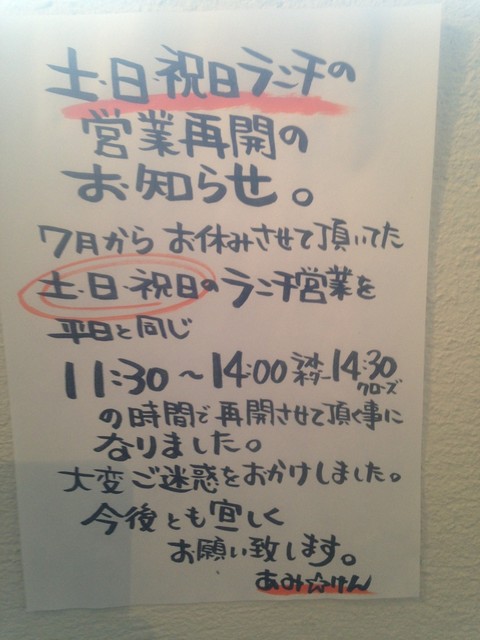 土・日祝日ランチの
営業再開の
お知らせ。
7月からお休みさせて頂いてた
土・日・祝日のランチ営業を
平日と同じ
11:30～14:00 ラストオーダー 14:30 クローズ
の時間で再開させて頂く事に
なりました。
大変ご迷惑をおかけしました。
今後とも宜しく
お願い致します。
あみ☆けん